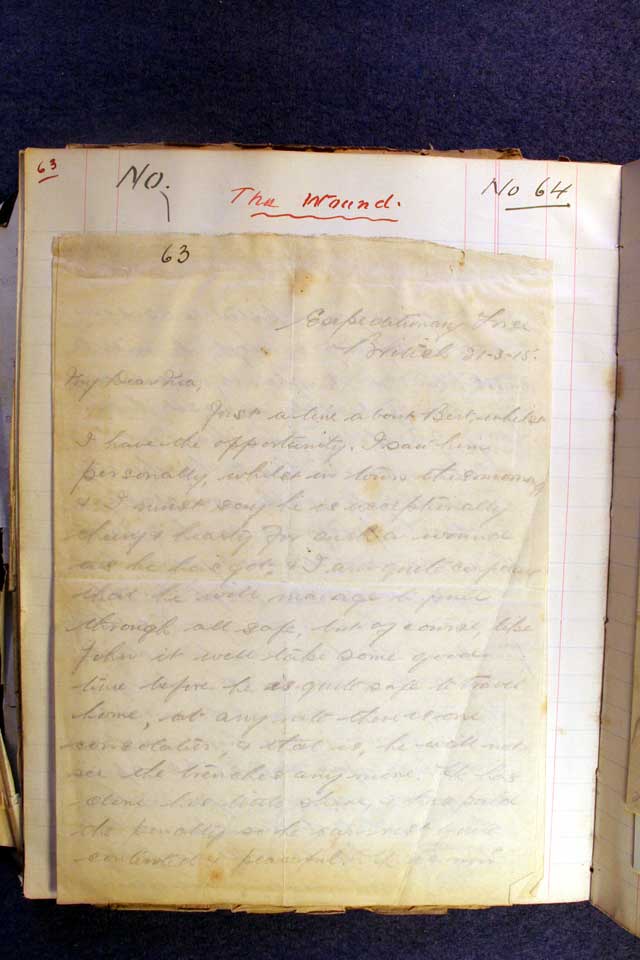 63
No.
The Wound.
No 64
63
Expeditionary Force
British 21-3-15.
My Dear
Just a line about Bert, whilst
I have the opportunity. I saw him
personally, whilst in town this morning
& I must say he is exceptionally
cheery & hearty for such a wound
as he has got, & I am quite
that he will manage to pull
through all safe, but of course, like
John it will take some good
time before he is quite safe to travel
home, at any rate there is one
consolation, & that is, he will not
see the trenches any more. He has
done his little share, & has paid
the penalty so he can rest
contented & peaceful.